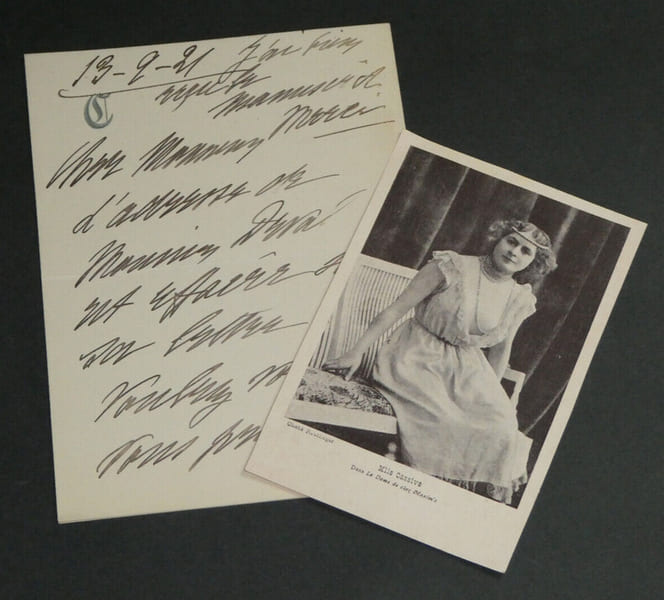 13-9-21 J'ai bien
reçu le
manuscrit
Merci
C
Cher Monsieur
l'adresse de
Monsieur Duval
est effacée s
sa lettre
voulez vo
vous
Photo Boulingue
Mlle Cassive
Dans La Dame de chez Maxim's